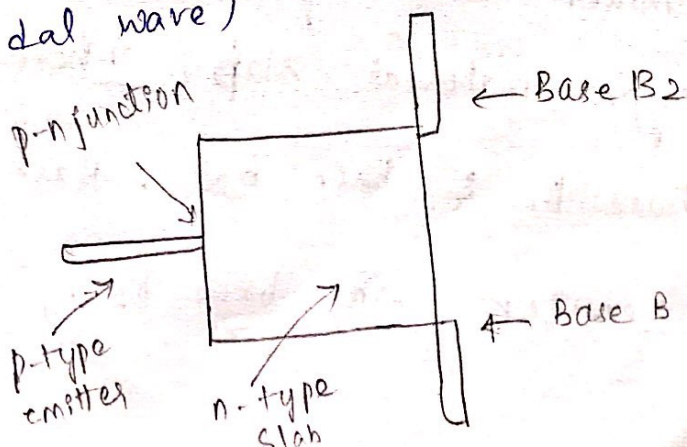 dal wave)
p-n junction
← Base B2
← Base B
p-type
emitter
n-type
slab